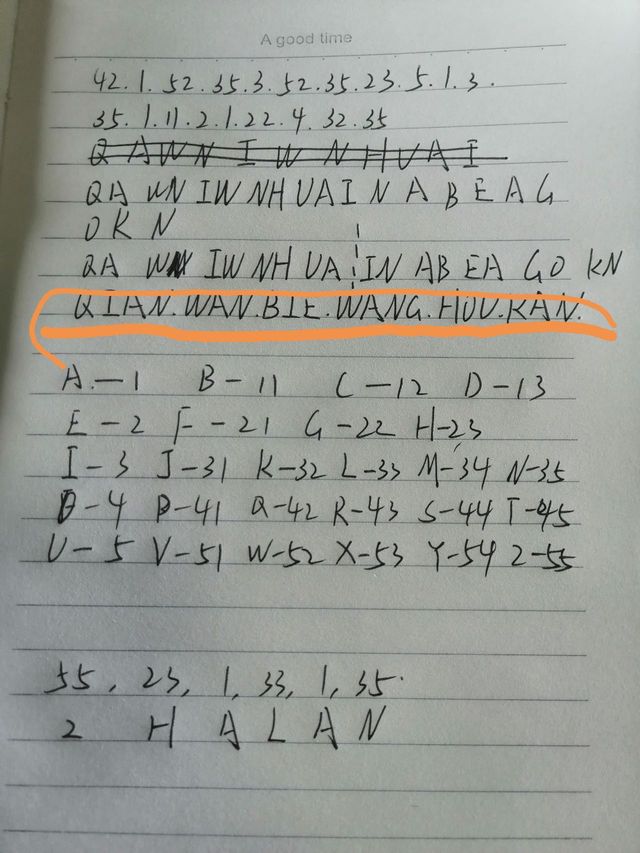 A good time
42.1.52.35.3.52.35.23.5.1.3.
35.1.11.2.1.22.4.32.35
Q A W N I W N H U A I
QA WN IW NH UA I N A B E A G
O K N
QA WN IW NH UA IN AB EA GO KN
QIAN.WAN.BIE.WANG.HOU.KAN.
A-1 B-11 C-12 D-13
E-2 F-21 G-22 H-23
I-3 J-31 K-32 L-33 M-34 N-35
O-4 P-41 Q-42 R-43 S-44 T-45
U-5 V-51 W-52 X-53 Y-54 Z-55
55, 23, 1, 33, 1, 35.
Z H A L A N